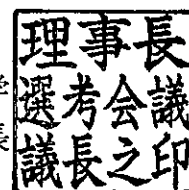 理事長
選考会議
議長之印
長